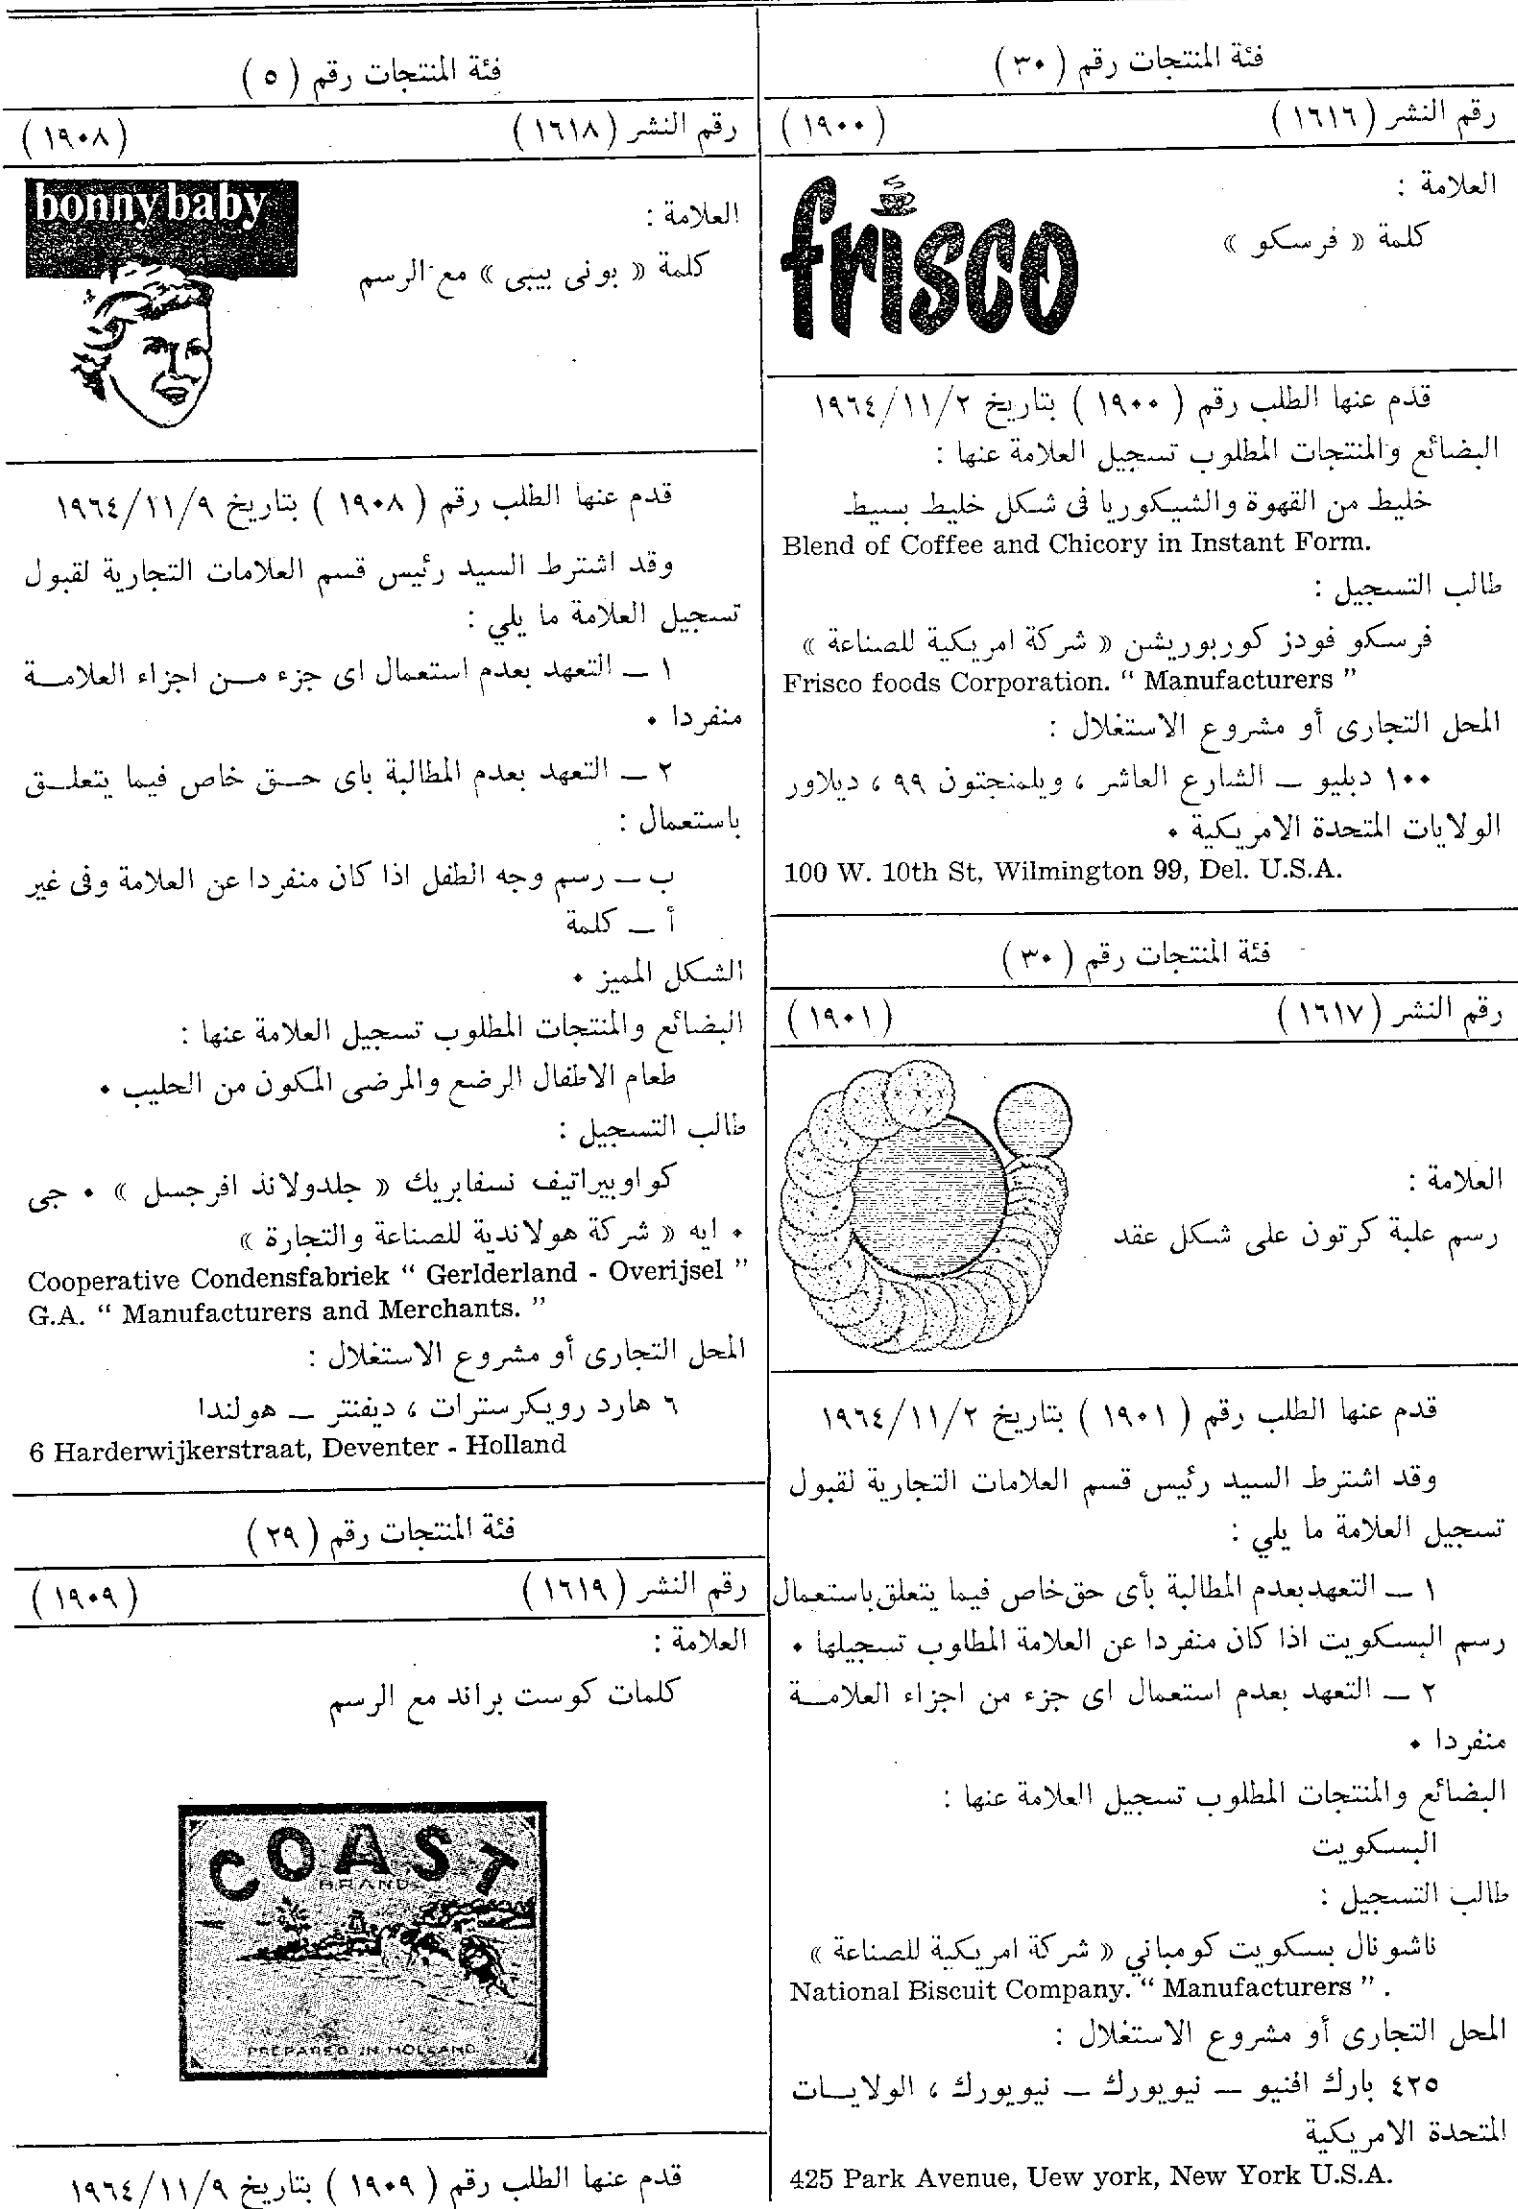 فئة المنتجات رقم ( ٣٠ )
رقم النشر ( ١٦١٦ ) ( ١٩٠٠ )
العلامة :
كلمة « فرسكو »
frisco
قدم عنها الطلب رقم ( ١٩٠٠ ) بتاريخ ١٩٦٤/١١/٢
البضائع والمنتجات المطلوب تسجيل العلامة عنها :
خليط من القهوة والشيكوريا فى شكل خليط بسيط
Blend of Coffee and Chicory in Instant Form.
طالب التسجيل :
فرسكو فودز كوربوريشن « شركة امريكية للصناعة »
Frisco foods Corporation. “ Manufacturers ”
المحل التجارى أو مشروع الاستغلال :
١٠٠ دبليو ــ الشارع العاشر ، ويلمنجتون ٩٩ ، ديلاور
الولايات المتحدة الامريكية .
100 W. 10th St, Wilmington 99, Del. U.S.A.
فئة المنتجات رقم ( ٣٠ )
رقم النشر ( ١٦١٧ ) ( ١٩٠١ )
العلامة :
رسم علبة كرتون على شكل عقد
قدم عنها الطلب رقم ( ١٩٠١ ) بتاريخ ١٩٦٤/١١/٢
وقد اشترط السيد رئيس قسم العلامات التجارية لقبول
تسجيل العلامة ما يلي :
١ ــ التعهد بعدم المطالبة بأى حق خاص فيما يتعلق باستعمال
رسم البسكويت اذا كان منفردا عن العلامة المطاوب تسجيلها .
٢ ــ التعهد بعدم استعمال اى جزء من اجزاء العلامــة
منفردا .
البضائع والمنتجات المطلوب تسجيل العلامة عنها :
البسكويت
طالب التسجيل :
ناشونال بسكويت كومباني « شركة امريكية للصناعة »
National Biscuit Company. “ Manufacturers ” .
المحل التجارى أو مشروع الاستغلال :
٤٢٥ بارك افنيو ــ نيويورك ــ نيويورك ، الولايــات
المتحدة الامريكية
425 Park Avenue, Uew york, New York U.S.A.
فئة المنتجات رقم ( ٥ )
رقم النشر ( ١٦١٨ ) ( ١٩٠٨ )
bonny baby
العلامة :
كلمة « بونى بيبى » مع الرسم
قدم عنها الطلب رقم ( ١٩٠٨ ) بتاريخ ١٩٦٤/١١/٩
وقد اشترط السيد رئيس قسم العلامات التجارية لقبول
تسجيل العلامة ما يلي :
١ ــ التعهد بعدم استعمال اى جزء مــن اجزاء العلامــة
منفردا .
٢ ــ التعهد بعدم المطالبة باى حــق خاص فيما يتعلــق
باستعمال :
ب ــ رسم وجه الطفل اذا كان منفردا عن العلامة وفى غير
أ ــ كلمة
الشكل المميز .
البضائع والمنتجات المطلوب تسجيل العلامة عنها :
طعام الاطفال الرضع والمرضى المكون من الحليب .
طالب التسجيل :
كواوبيراتيف نسفابريك « جلدولاند افرجسل » . جى
. ايه « شركة هولاندية للصناعة والتجارة »
Cooperative Condensfabriek “ Gerlderland - Overijsel ”
G.A. “ Manufacturers and Merchants. ”
المحل التجارى أو مشروع الاستغلال :
٦ هارد رويكرسترات ، ديفنتر ــ هولندا
6 Harderwijkerstraat, Deventer - Holland
فئة المنتجات رقم ( ٢٩ )
رقم النشر ( ١٦١٩ ) ( ١٩٠٩ )
العلامة :
كلمات كوست براند مع الرسم
COAST
BRAND
PREPARED IN HOLLAND
قدم عنها الطلب رقم ( ١٩٠٩ ) بتاريخ ١٩٦٤/١١/٩